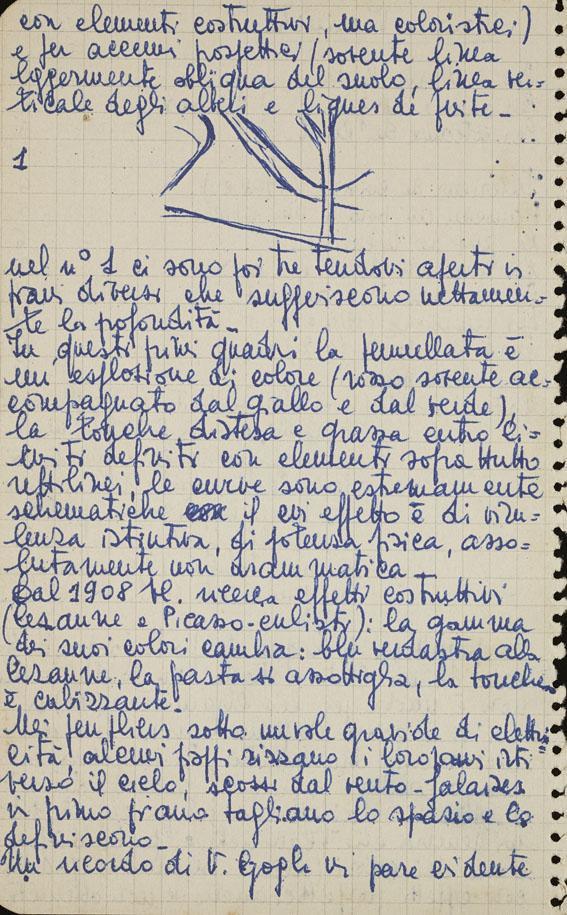 con elementi costruttivi, ma coloristici)
e per accenni prospettici (sovente linea
leggermente obliqua del suolo, linea ver=
ticale degli alberi e lignes de fuite_
1
nel n° 1 ci sono poi tre tendoni aperti in
piani diversi che suggeriscono nettamen=
te la profondità_
In questi primi quadri la pennellata è
un esplosione di colore (rosso sovente ac=
compagnato dal giallo e dal verde),
la touche distesa e grassa entro li=
miti definiti con elementi soprattutto
rettilinei, le curve sono estremamente
schematiche il cui effetto è di viru=
lenza istintiva, di potenza fisica, asso=
lutamente non drammatica_
Dal 1908 Vl. ricerca effetti costruttivi
(Cézanne e Picasso-cubisti): la gamma
dei suoi colori cambia: blu verdastra alla
Cezanne, la pasta si assottiglia, la touche
è cubizzante.
Nei peupliers sotto nuvole gravide di elettri=
cità, alcuni pioppi rizzano i loro rami irti
verso il cielo, scossi dal vento- falaises
in primo piano tagliano lo spazio e lo
definiscono_
Un ricordo di V. Gogh vi pare evidente